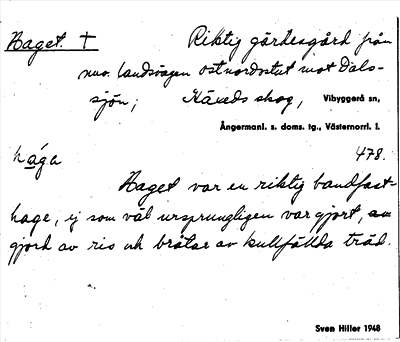 Haget. † Riktig gärdesgård från
nuv. landsvägen ostnordostut mot Dals-
sjön; Häveds skog, Vibyggerå sn,
Ångermanl. s. doms. tg., Västernorrl. l.
hága 478.
Haget var en riktig bandfast-
hage, ej som väl ursprungligen var gjort, au
gjord av ris och bråtar av kullfällda träd.
Sven Hiller 1948